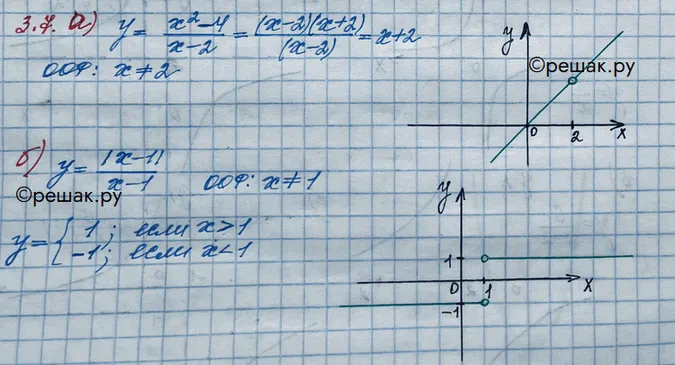 3.7. а) y = x²-4 / x-2 = (x-2)(x+2) / (x-2) = x+2
ООФ: x ≠ 2
y
©решак.ру
0 2 x
б) y = |x-1| / x-1 ООФ: x ≠ 1
©решак.ру
y = { 1; если x>1
-1; если x<1
y
1
0 1 x
-1